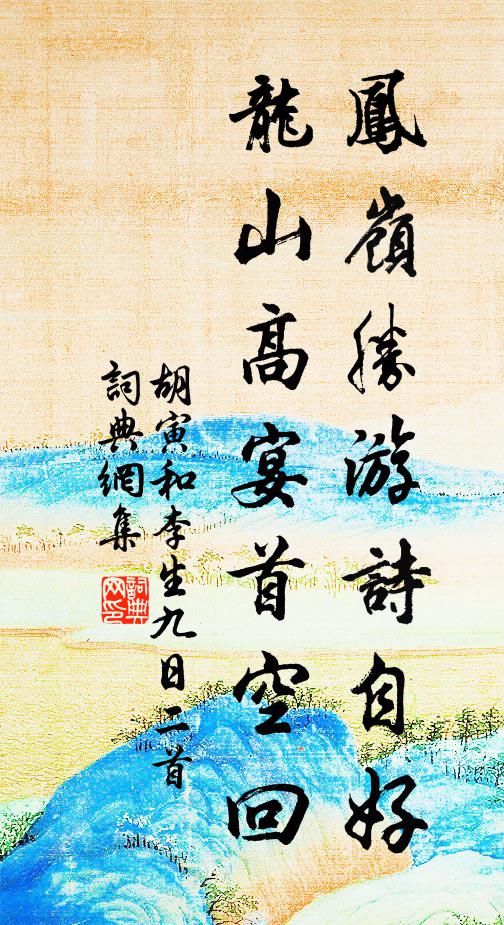 鳳嶺勝游詩自好
龍山高宴首空回
胡寅和李生九日二首
詞典網集